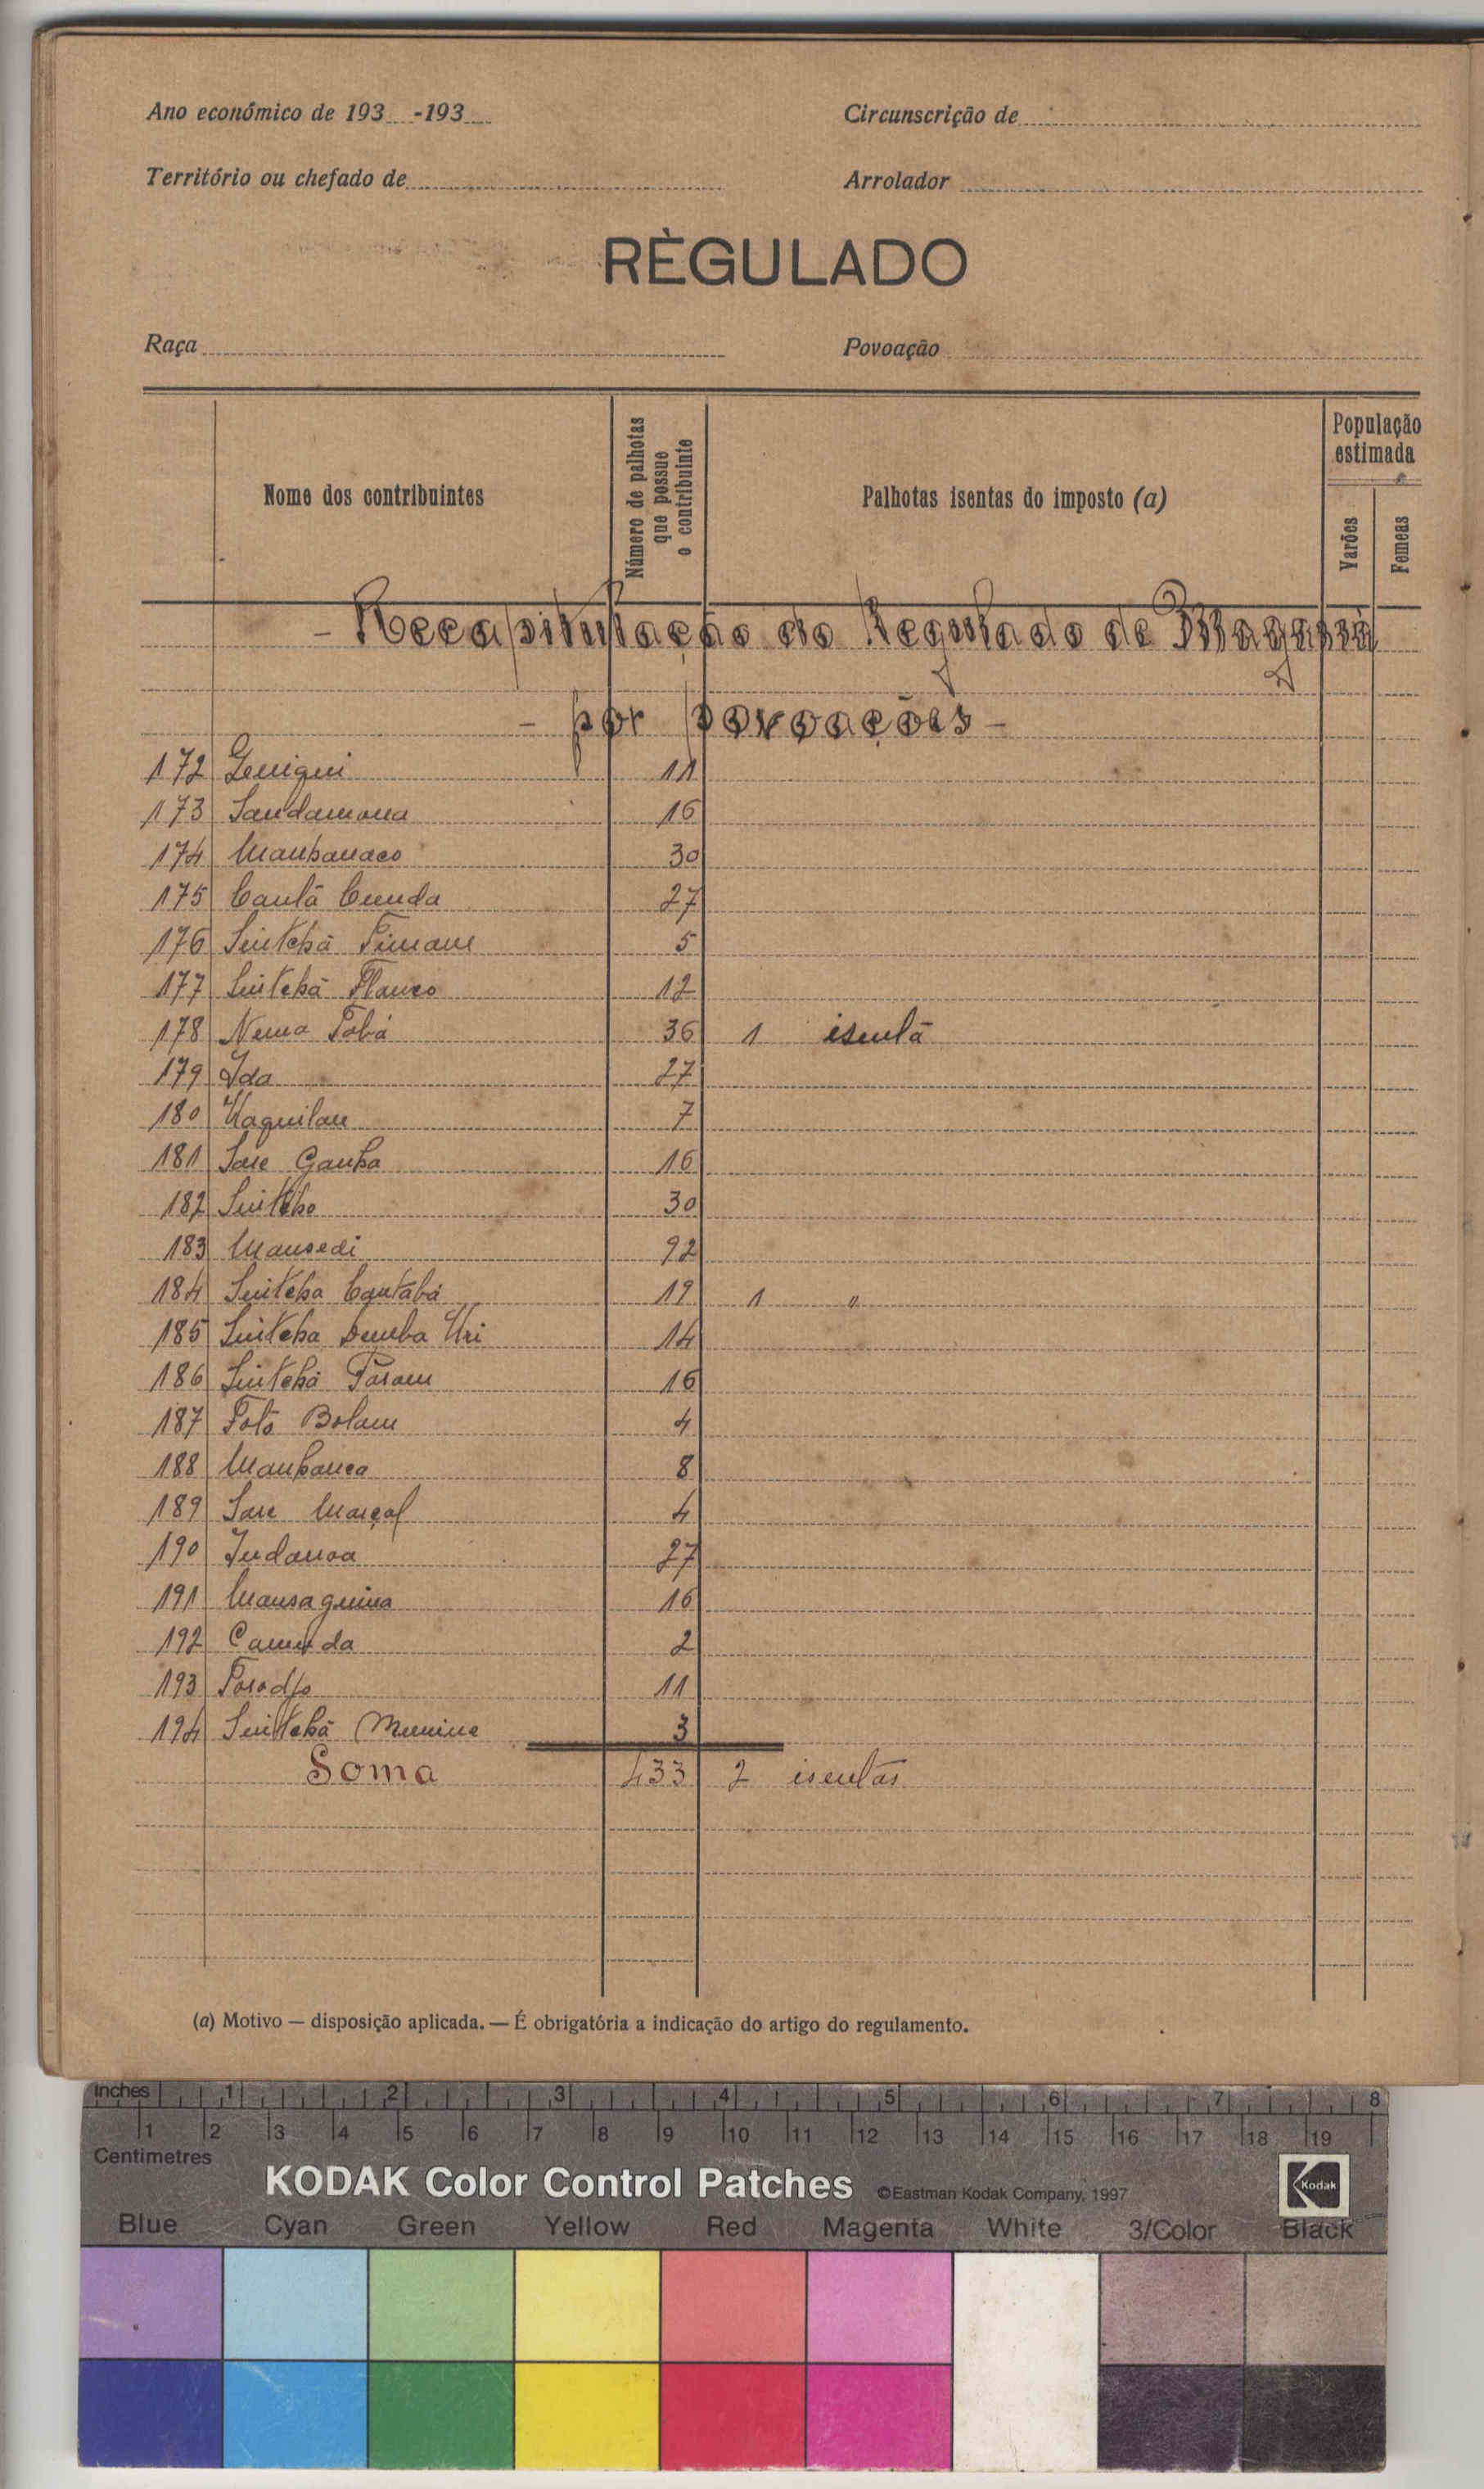 Ano económico de 193 -193
Circunscrição de
Território ou chefado de
Arrolador
RÈGULADO
Raça
Povoação
Nome dos contribuintes
Número de palhotas que possue o contribuinte
Palhotas isentas do imposto (a)
População estimada
Varões
Femeas
- Recapitulação do Regulado de
- por povoações -
172 Geniqui 11
173 Sandamona 16
174 30
175 Cantã Cunda 27
176 Sintchã 5
177 Sintchã 12
178 Nema Tabá 36 1 isenta
179 Ida 27
180 7
181 Sare Ganha 16
182 Sintcho 30
183 Mansedi 92
184 Sintcha Cantabá 19 1 "
185 Sintcha Demba Uri 14
186 Sintchã 16
187 4
188 8
189 Sare Marçal 4
190 27
191 Mansaguina 16
192 2
193 11
194 Sintchã 3
Soma 433 2 isentas
(a) Motivo — disposição aplicada. — É obrigatória a indicação do artigo do regulamento.
Inches 1 2 3 4 5 6 7 8
1 2 3 4 5 6 7 8 9 10 11 12 13 14 15 16 17 18 19
Centimetres
KODAK Color Control Patches ©Eastman Kodak Company, 1997 Kodak
Blue Cyan Green Yellow Red Magenta White 3/Color Black